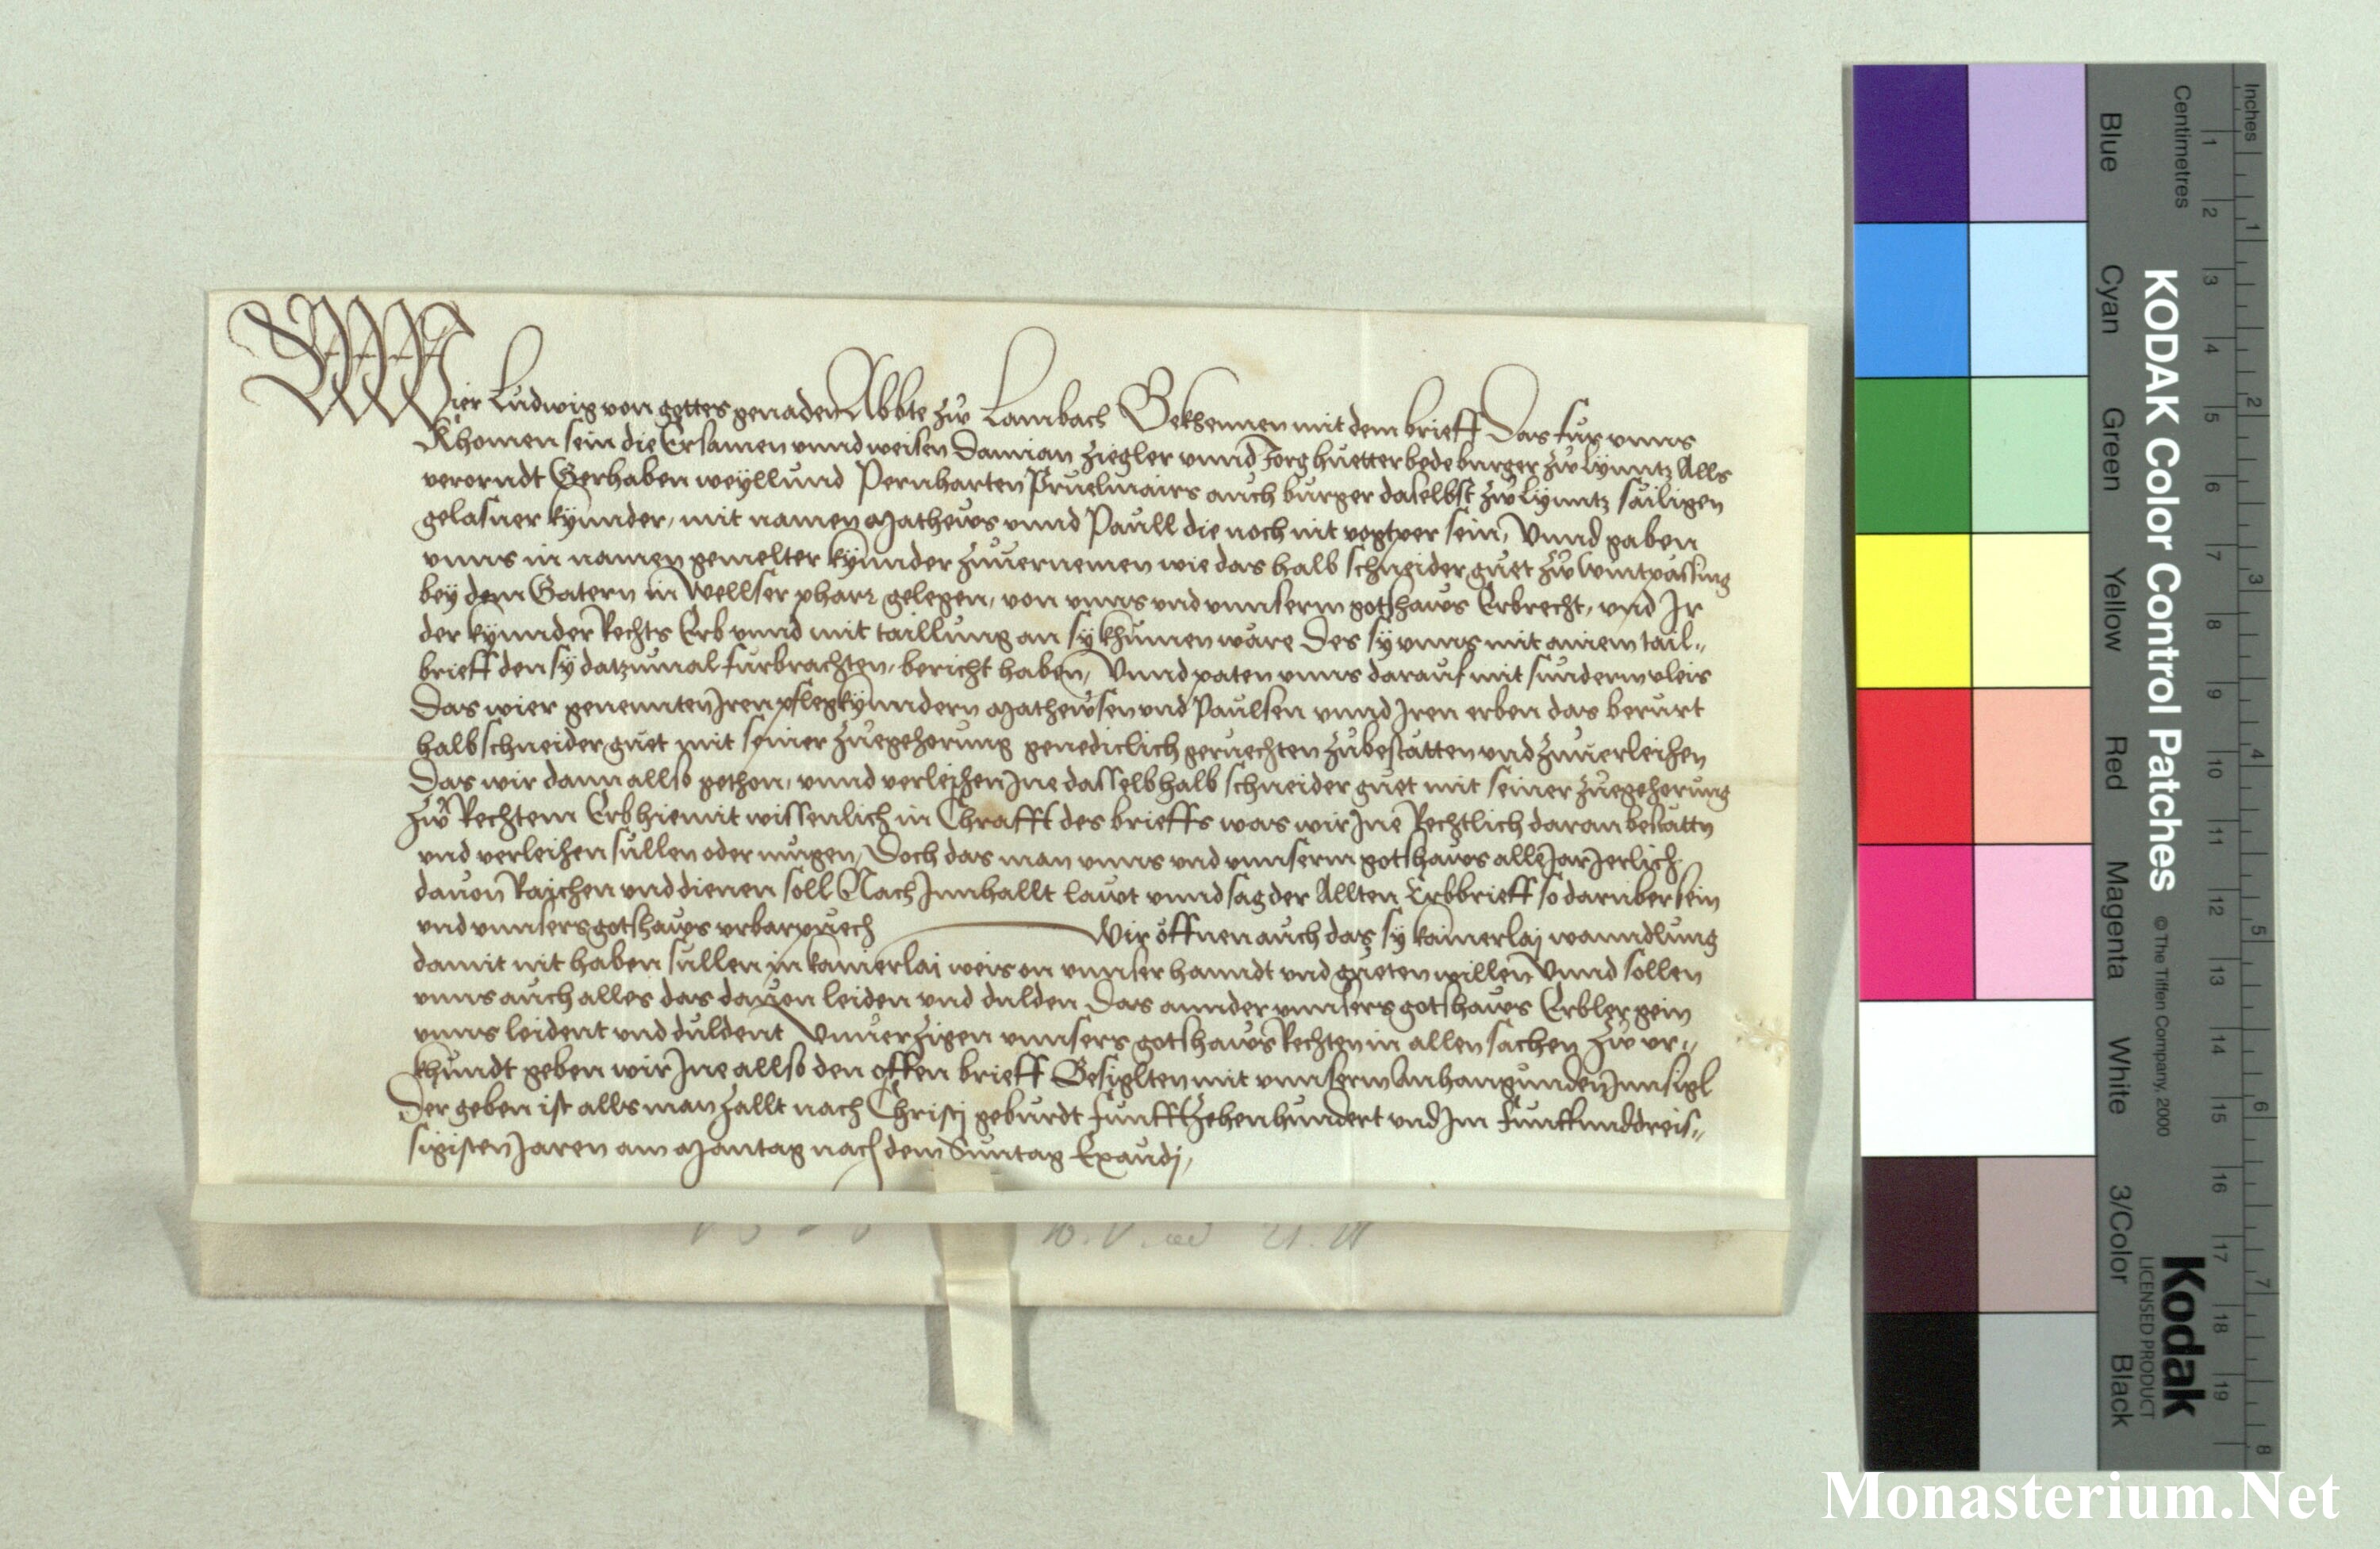 Wier Ludwig von gottes genaden Abbte zw̆ Lambach Bekhennen mit dem brieff Das fur vnns
Khomen sein die Ersamen vnnd weisen Damian Ziegler vnnd Jorg huetter bede burger zw̆ Lynntz Alls
verorndt Gerhaben weyllund Pernharten Pruelmairs auch burger daselbst zw̆ Lynntz säiligen
gelasner kynnder, mit namen Mathews vnnd Paull die noch nit vogtper sein, Vnnd gaben
vnns in namen gemelter kynnder zuuernemen wie das halb schneider guet zw̆ Wintpassing
bey dem Gatern in Wellser pharr gelegen, von vnns vnd vnnserm gotshaws Erbrecht, vnd Ir
der kynnder Rechts Erb vnnd mit taillung an sy khumen wäre Des sy vnns mit ainem tail„
brieff den sy datzumal furbrachten, bericht haben, Vnnd paten vnns darauf mit sunderm vleis
Das wier genennten Iren pflegkynndern Mathewsen vnd Paulsen vnnd Iren erben das berurt
halb schneider guet mit seiner zuegehorung genediclich geruechten zubestätten vnd zuuerleihen
Das wir dann allso gethon, vnnd verleihen Ine dasselb halb schneider guet mit seiner zuegehorung
zw̆ Rechtem Erb hiemit wissenlich in Chrafft des brieffs was wir Ine Rechtlich daran bestättn
vnd verleihen sullen oder mugen, Doch das man vnns vnd vnnserm gotshaws alle Jar Jerlich
dauon Raichen vnd dienen soll Nach Innhallt lawt vnnd sag der Allten Erbbrieff so daruber sein
vnd vnnsers gotshaws vrbarpuech Wir öffnen auch das sy kainerlaj wanndlung
damit nit haben sullen in kainerlai weis on vnnser hanndt vnd gueten willen Vnnd sollen
vnns auch alles das dauon leiden vnd dulden Das annder vnnsers gotshaws Erbler gein
vnns leident vnd duldent Vnuerzigen vnnsers gotshaws Rechten in allen sachen Zw̆ vr„
khundt geben wir Ine allso den offen brieff Besiglten mit vnnserm Anhangunden Innsigl
Der geben ist alls man zallt nach Christj geburdt funfftzehenhundert vnd Im funffunddreis„
sigisten Jaren am Mantag nach dem Suntag Exaudj,
KODAK Color Control Patches
© The Tiffen Company, 2000
Kodak
LICENSED PRODUCT
Inches
1 2 3 4 5 6 7 8
Centimetres
1 2 3 4 5 6 7 8 9 10 11 12 13 14 15 16 17 18 19
Blue Cyan Green Yellow Red Magenta White 3/Color Black
Monasterium.Net